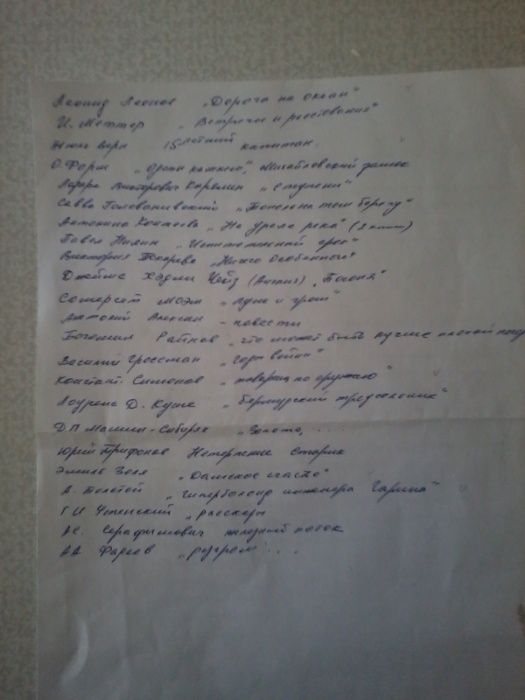 Леонид Леонов „Дорога на океан"
И. Меттер „Встречи и расставания"
Жюль Верн 15 летний капитан.
О. Форш „Одеты камнем", Михайловский замок
Лазарь Викторович Карелин „Ступени"
Савва Голованивский „Тополь на том берегу"
Антонина Коптяева „На Урале реке" (2 книги)
Павел Нилин
Виктория Токарева „Ничего особенного"
Джеймс Хэдли Чейз (Англия) „Погоня"
Сомерсет Моэм „Луна и грош"
Анатолий Алексин – повести
Богомил Райнов „что может быть лучше плохой
Василий Гроссман „Годы войны"
Констант. Симонов „товарищ по оружию"
Лоуренс Д. Куше „Бермудский треугольник"
Д П Мамин-Сибиряк „Золото, ...
Юрий Трифонов Нетерпение Старик
Эмиль Золя „Дамское счастье"
А. Толстой „Гиперболоид инженера Гарина"
Г И Успенский „рассказы
А.С. Серафимович железный поток
АА Фадеев „разгром ...